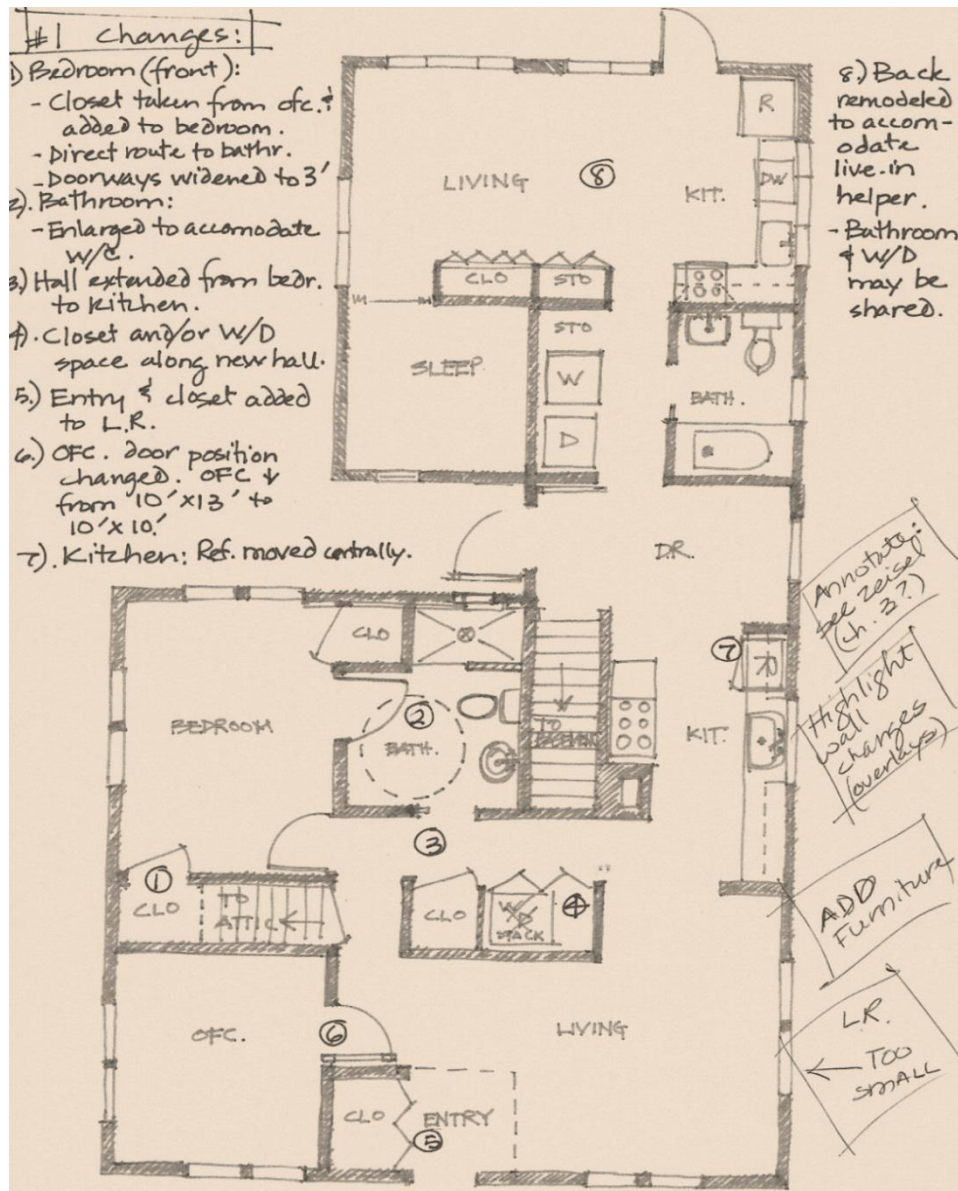 #1 changes:
1) Bedroom (front):
- Closet taken from ofc. &
added to bedroom.
- Direct route to bathr.
- Doorways widened to 3'
2). Bathroom:
- Enlarged to accomodate
W/C.
3) Hall extended from bedr.
to kitchen.
4). Closet and/or W/D
space along new hall.
5.) Entry & closet added
to L.R.
6.) OFC. door position
changed. OFC ↓
from 10'x13' to
10'x10'
7). Kitchen: Ref. moved centrally.
8.) Back
remodeled
to accom-
odate
live-in
helper.
- Bathroom
& W/D
may be
shared.
R
LIVING
8
KIT.
DW
CLO
STO
STO
SLEEP
W
BATH.
D
D.R.
Annotate:
see Zeisel
(ch. 3?)
CLO
7
R
Highlight
wall
changes
(overlays)
BEDROOM
2
BATH.
TO
BASEMENT
KIT.
3
1
CLO
TO
ATTIC
CLO
W/D
STACK
4
ADD
Furniture
OFC.
6
LIVING
L.R.
← TOO
SMALL
CLO
ENTRY
5